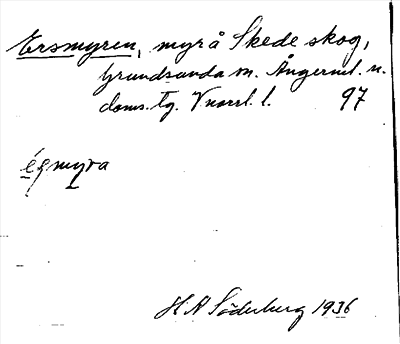 Ersmyren, myr å Skede skog,
Grundsunda sn. Ångerml. n.
doms. tg. Vnorrl. l. 97
éṣmyra
H A Söderberg 1936